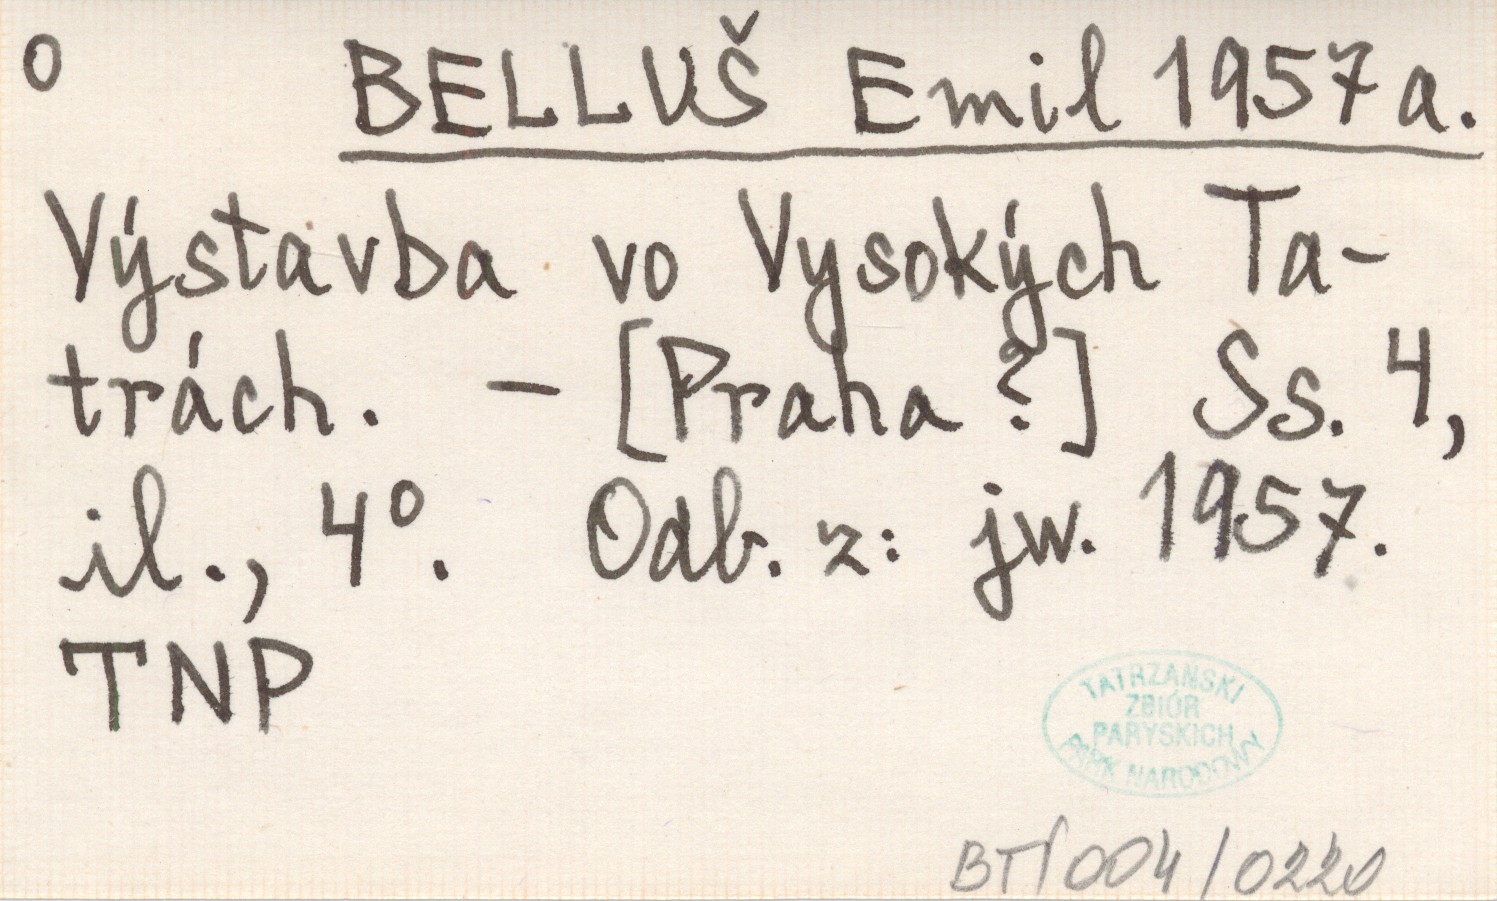 o BELLUŠ Emil 1957a.
Výstavba vo Vysokých Ta-
trách. - [Praha?] Ss. 4,
il., 4°. Odb. z: jw. 1957.
TNP
TATRZAŃSKI
ZBIÓR
PARYSKICH
PARK NARODOWY
BT/004/0220